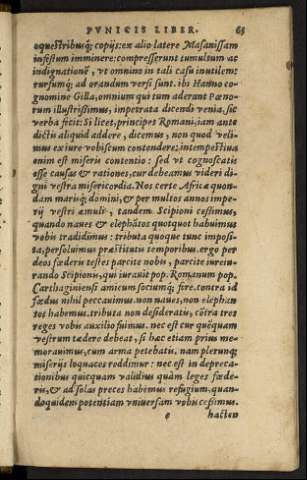 PVNICIS LIBER. 65
oquestribusq́; copijs: ex alio latere Masanissam
infestum imminere: compresserunt tumultum ac
indignationē, vt omnino in tali casu inutilem:
rursumq́; ad orandum versi sunt. ibi Hanno co-
gnomine Gilla, omnium qui tum aderant Pœno-
rum illustrissimus, impetrata dicendi venia, sic
verba fecit: Si licet, principes Romani, iam ante
dictis aliquid addere, dicemus, non quod veli-
mus ex iure vobiscum contendere: intempestiua
enim est miseris contentio: sed vt cognoscatis
esse causas & rationes, cur debeamus videri di-
gni vestra misericordia. Nos certe Africæ quon-
dam marisq́; domini, & per multos annos impe-
rij vestri æmuli, tandem Scipioni cessimus,
quando naues & elephātos quotquot habuimus
vobis tradidimus: tributa quoque tunc imposi-
ta, persoluimus præstitutis temporibus. ergo per
deos fœderũ testes parcite nobis, parcite iureiu-
rando Scipionis, qui iurauit pop. Romanum pop.
Carthaginiensi amicum sociumq́; fore. contra id
fœdus nihil peccauimus. non naues, non elephan
tos habemus. tributa non desiderātis, cōtra tres
reges vobis auxilio fuimus. nec est cur quēquam
vestrum tædere debeat, si hæc etiam prius me-
morauimus, cum arma petebatis. nam plerunq́;
miserijs loquaces reddimur: nec est in depreca-
tionibus quicquam validius quàm leges fœde-
ris, & ad solas preces habemus refugium, quan-
doquidem potentiam vniuersam vobis cessimus.
e hacten